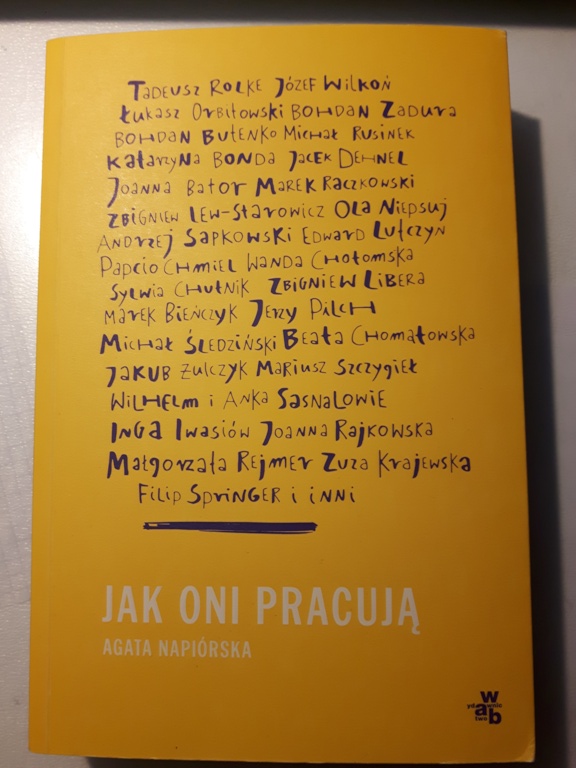 Tadeusz Rolke Józef Wilkoń
Łukasz Orbitowski Bohdan Zadura
Bohdan Butenko Michał Rusinek
Katarzyna Bonda Jacek Dehnel
Joanna Bator Marek Raczkowski
Zbigniew Lew-Starowicz Ola Niepsuj
Andrzej Sapkowski Edward Lutczyn
Papcio Chmiel Wanda Chotomska
Sylwia Chutnik Zbigniew Libera
Marek Bieńczyk Jerzy Pilch
Michał Śledziński Beata Chomątowska
Jakub Żulczyk Mariusz Szczygieł
Wilhelm i Anka Sasnalowie
Inga Iwasiów Joanna Rajkowska
Małgorzata Rejmer Zuza Krajewska
Filip Springer i inni
JAK ONI PRACUJĄ
AGATA NAPIÓRSKA
w
yd a wnic
two b